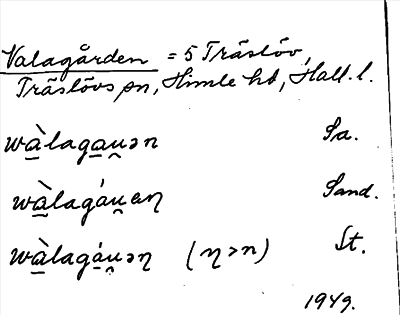 Valagården = 5 Träslöv,
Träslövs sn, Himle hd, Hall. l.
wàlagau̯ən Sa.
wàlagáu̯eꞑ Sand.
wàlagáu̯əꞑ (ꞑ>n) St.
1949.